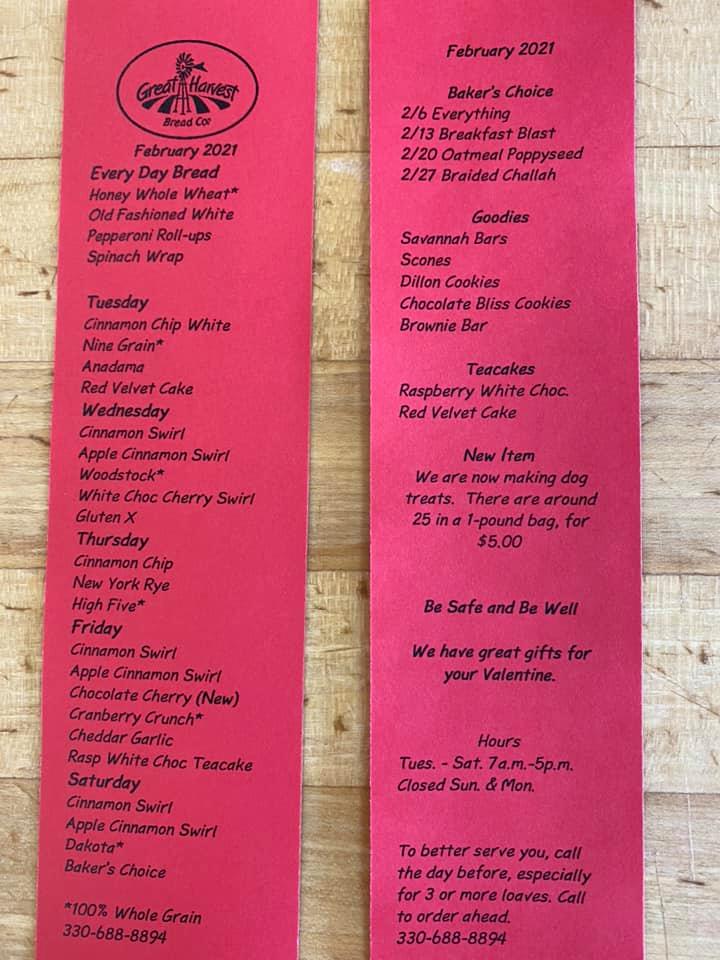 Great Harvest
Bread Co®
February 2021
Every Day Bread
Honey Whole Wheat*
Old Fashioned White
Pepperoni Roll-ups
Spinach Wrap
Tuesday
Cinnamon Chip White
Nine Grain*
Anadama
Red Velvet Cake
Wednesday
Cinnamon Swirl
Apple Cinnamon Swirl
Woodstock*
White Choc Cherry Swirl
Gluten X
Thursday
Cinnamon Chip
New York Rye
High Five*
Friday
Cinnamon Swirl
Apple Cinnamon Swirl
Chocolate Cherry (New)
Cranberry Crunch*
Cheddar Garlic
Rasp White Choc Teacake
Saturday
Cinnamon Swirl
Apple Cinnamon Swirl
Dakota*
Baker's Choice
*100% Whole Grain
330-688-8894
February 2021
Baker's Choice
2/6 Everything
2/13 Breakfast Blast
2/20 Oatmeal Poppyseed
2/27 Braided Challah
Goodies
Savannah Bars
Scones
Dillon Cookies
Chocolate Bliss Cookies
Brownie Bar
Teacakes
Raspberry White Choc.
Red Velvet Cake
New Item
We are now making dog
treats. There are around
25 in a 1-pound bag, for
$5.00
Be Safe and Be Well
We have great gifts for
your Valentine.
Hours
Tues. - Sat. 7a.m.-5p.m.
Closed Sun. & Mon.
To better serve you, call
the day before, especially
for 3 or more loaves. Call
to order ahead.
330-688-8894